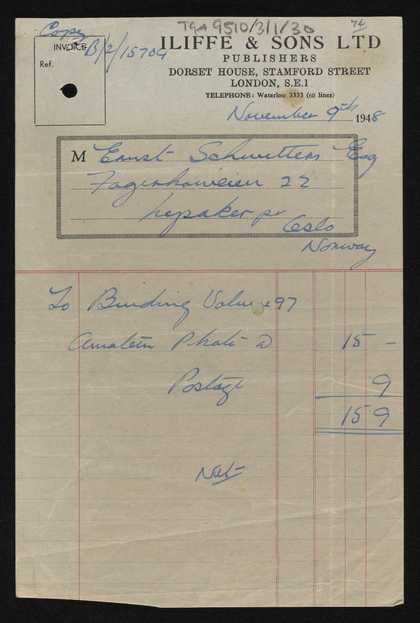 Copy
TGA 9510/3/1/30
74
INVOICE B/2/15709
Ref.
ILIFFE & SONS LTD
PUBLISHERS
DORSET HOUSE, STAMFORD STREET
LONDON, S.E.1
TELEPHONE: Waterloo 3333 (50 lines)
November 9th 1948
M Ernst Schwitters Esq
22
Lysaker pr
Oslo
Norway
To Binding Volume 97
Amateur Photo 15 -
Postage 9
15 9
Net